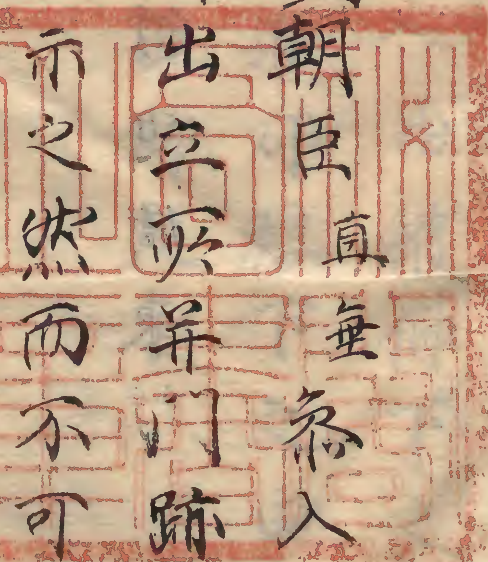 朝臣直垂参入
出立所并門跡
示之然而不可